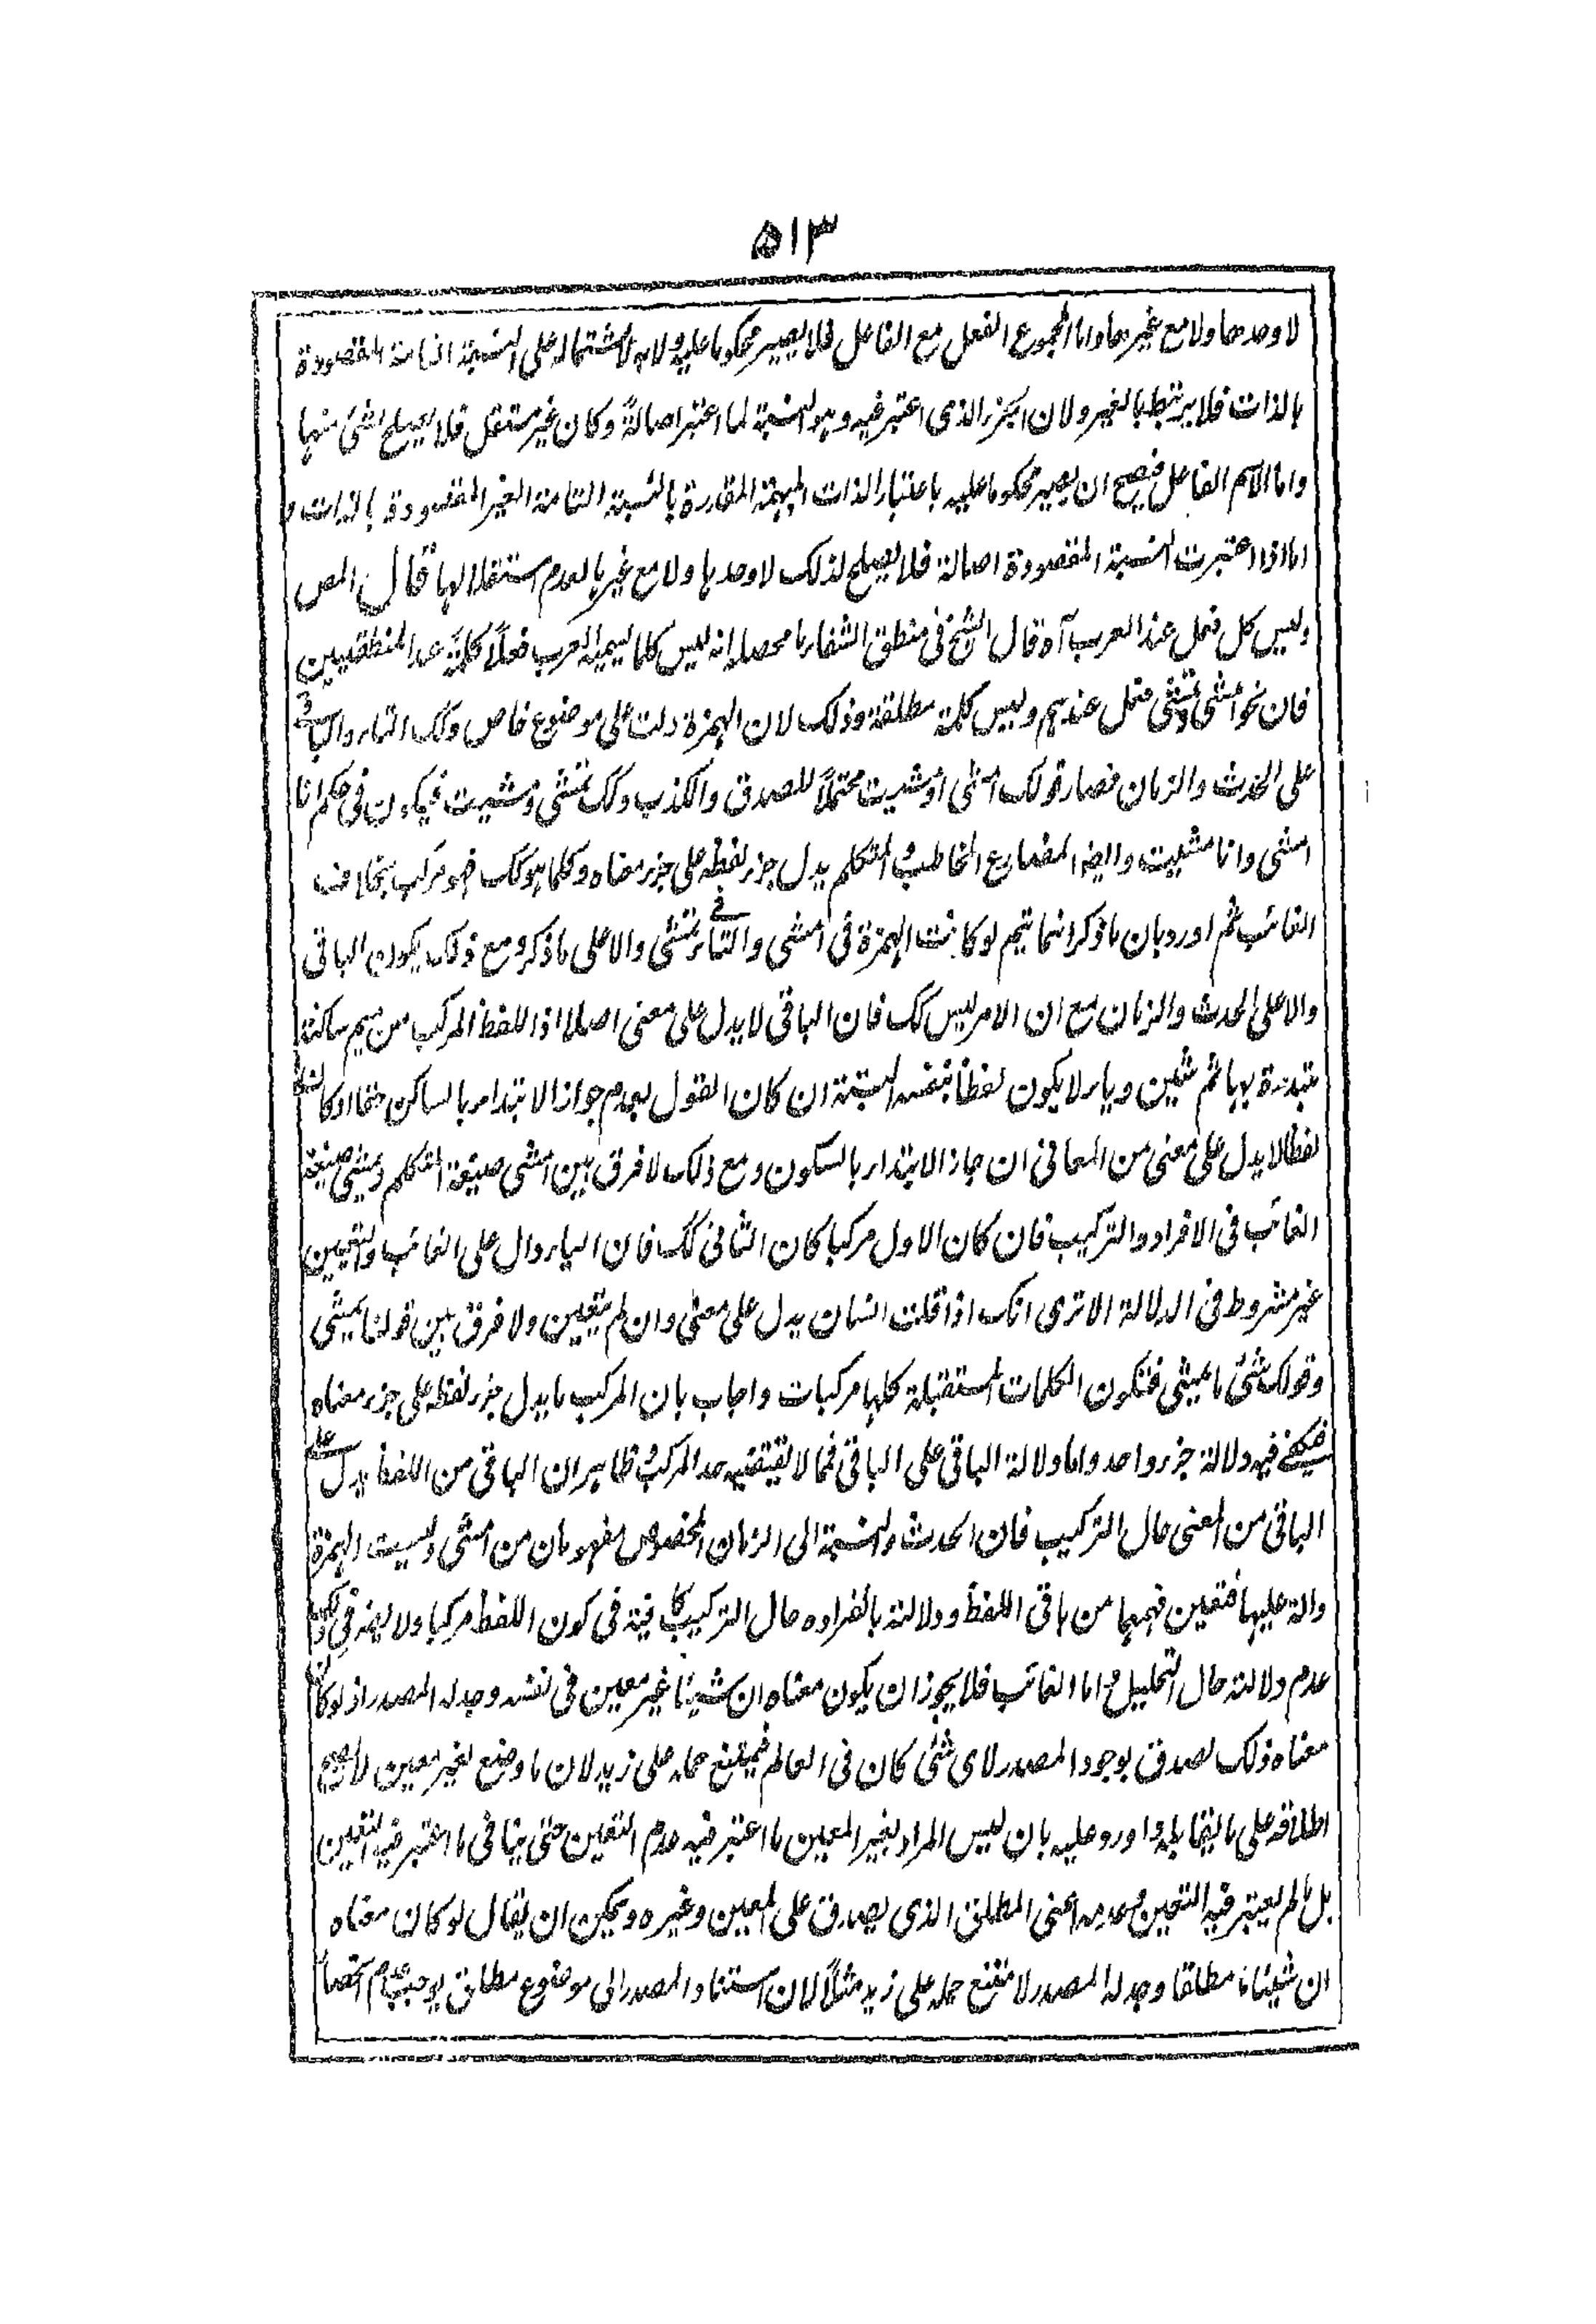 ۵۱۳
لا وحدها ولا مع غيرها واما المجموع الفعل مع الفاعل فلا يصير محكوما عليه ولا به لاشتماله على النسبة التامة المقصودة
بالذات فلا يرتبط بالغير ولان الجزء الذى اعتبر فيه وهو النسبة لما اعتبر اصالةً وكان غير مستقل فلا يصلح لشئ منها
واما الاسم الفاعل فيصح ان يصير محكوما عليه باعتبار الذات المبهمة المقدرة بالنسبة التامة الغير المقصودة بالذات و
اما اذا اعتبرت النسبة المقصودة اصالة فلا يصلح لذلك لا وحدها ولا مع غيرها لعدم استقلالها قال المص
وليس كل فعل عند العرب آه قال الشيخ فى منطق الشفاء ما محصله انه ليس كلما يسميه العرب فعلاً كلمةً عند المنطقيين
فان نحو امشى وتمشى فعل عندهم وليس كلمة مطلقة وذلك لان الهمزة دلت على موضوع خاص وكك التاء والباقى
على الحدث والزمان فصار قولك امشى او مشيت محتملاً للصدق والكذب وكك تمشى ومشيت فيكون فى حكم انا
امشى وانا مشيت وايضا المضارع المخاطب والمتكلم يدل جزء لفظه على جزء معناه وكلما هو كك فهو مركب بخلاف
الغائب ثم اورد بان ما ذكر انما يتم لو كانت الهمزة فى امشى والتاء فى تمشى دالا على ما ذكر ومع ذلك يكون الباقى
دالا على الحدث والزمان مع ان الامر ليس كك فان الباقى لا يدل على معنى اصلا اذ اللفظ المركب من ميم ساكنة
مبتدءة بها ثم شين وياء لا يكون لفظاً بنفسه البتة ان كان القول بعدم جواز الابتداء بالساكن حقا او كان
لفظا لا يدل على معنى من المعانى ان جاز الابتداء بالسكون ومع ذلك لا فرق بين امشى صيغة المتكلم ويمشى صيغة
الغائب فى الافراد والتركيب فان كان الاول مركبا كان الثانى كك فان الياء دال على الغائب والتعيين
غير مشروط فى الدلالة الا ترى انك اذا قلت انسان يدل على معنى وان لم يتعين ولا فرق بين قولنا يمشى
وقولك شئ ما يمشى فتكون الكلمات المستقبلة كلها مركبات واجاب بان المركب ما يدل جزء لفظه على جزء معناه
فيكفى فيه دلالة جزء واحد واما دلالة الباقى على الباقى فمما لا يقتضيه حد المركب وظاهر ان الباقى من اللفظ يدل على
الباقى من المعنى حال التركيب فان الحدث والنسبة الى الزمان المخصوص مفهومان من امشى وليست الهمزة
دالة عليها فتعين فهمها من باقى اللفظ ودلالته بانفراده حال التركيب كافية فى كون اللفظ مركبا ولا يضر فى ذلك
عدم دلالته حال التحليل واما الغائب فلا يجوز ان يكون معناه ان شيئا غير معين فى نفسه وجد له المصدر اذ لو كان
معناه ذلك لصدق بوجود المصدر لاى شئ كان فى العالم فيمتنع حمله على زيد لان ما وضع لغير معين لا يصح
اطلاقه على ما يقابله واورد عليه بان ليس المراد بغير المعين ما اعتبر فيه عدم التعين حتى ينافى ما اعتبر فيه التعين
بل ما لم يعتبر فيه التعين وعدمه اعنى المطلق الذى يصدق على المعين وغيره ويمكن ان يقال لو كان معناه
ان شيئا ما مطلقا وجد له المصدر لامتنع حمله على زيد مثلاً لان استناد المصدر الى موضوع مطلق يوجب عدم اختصا